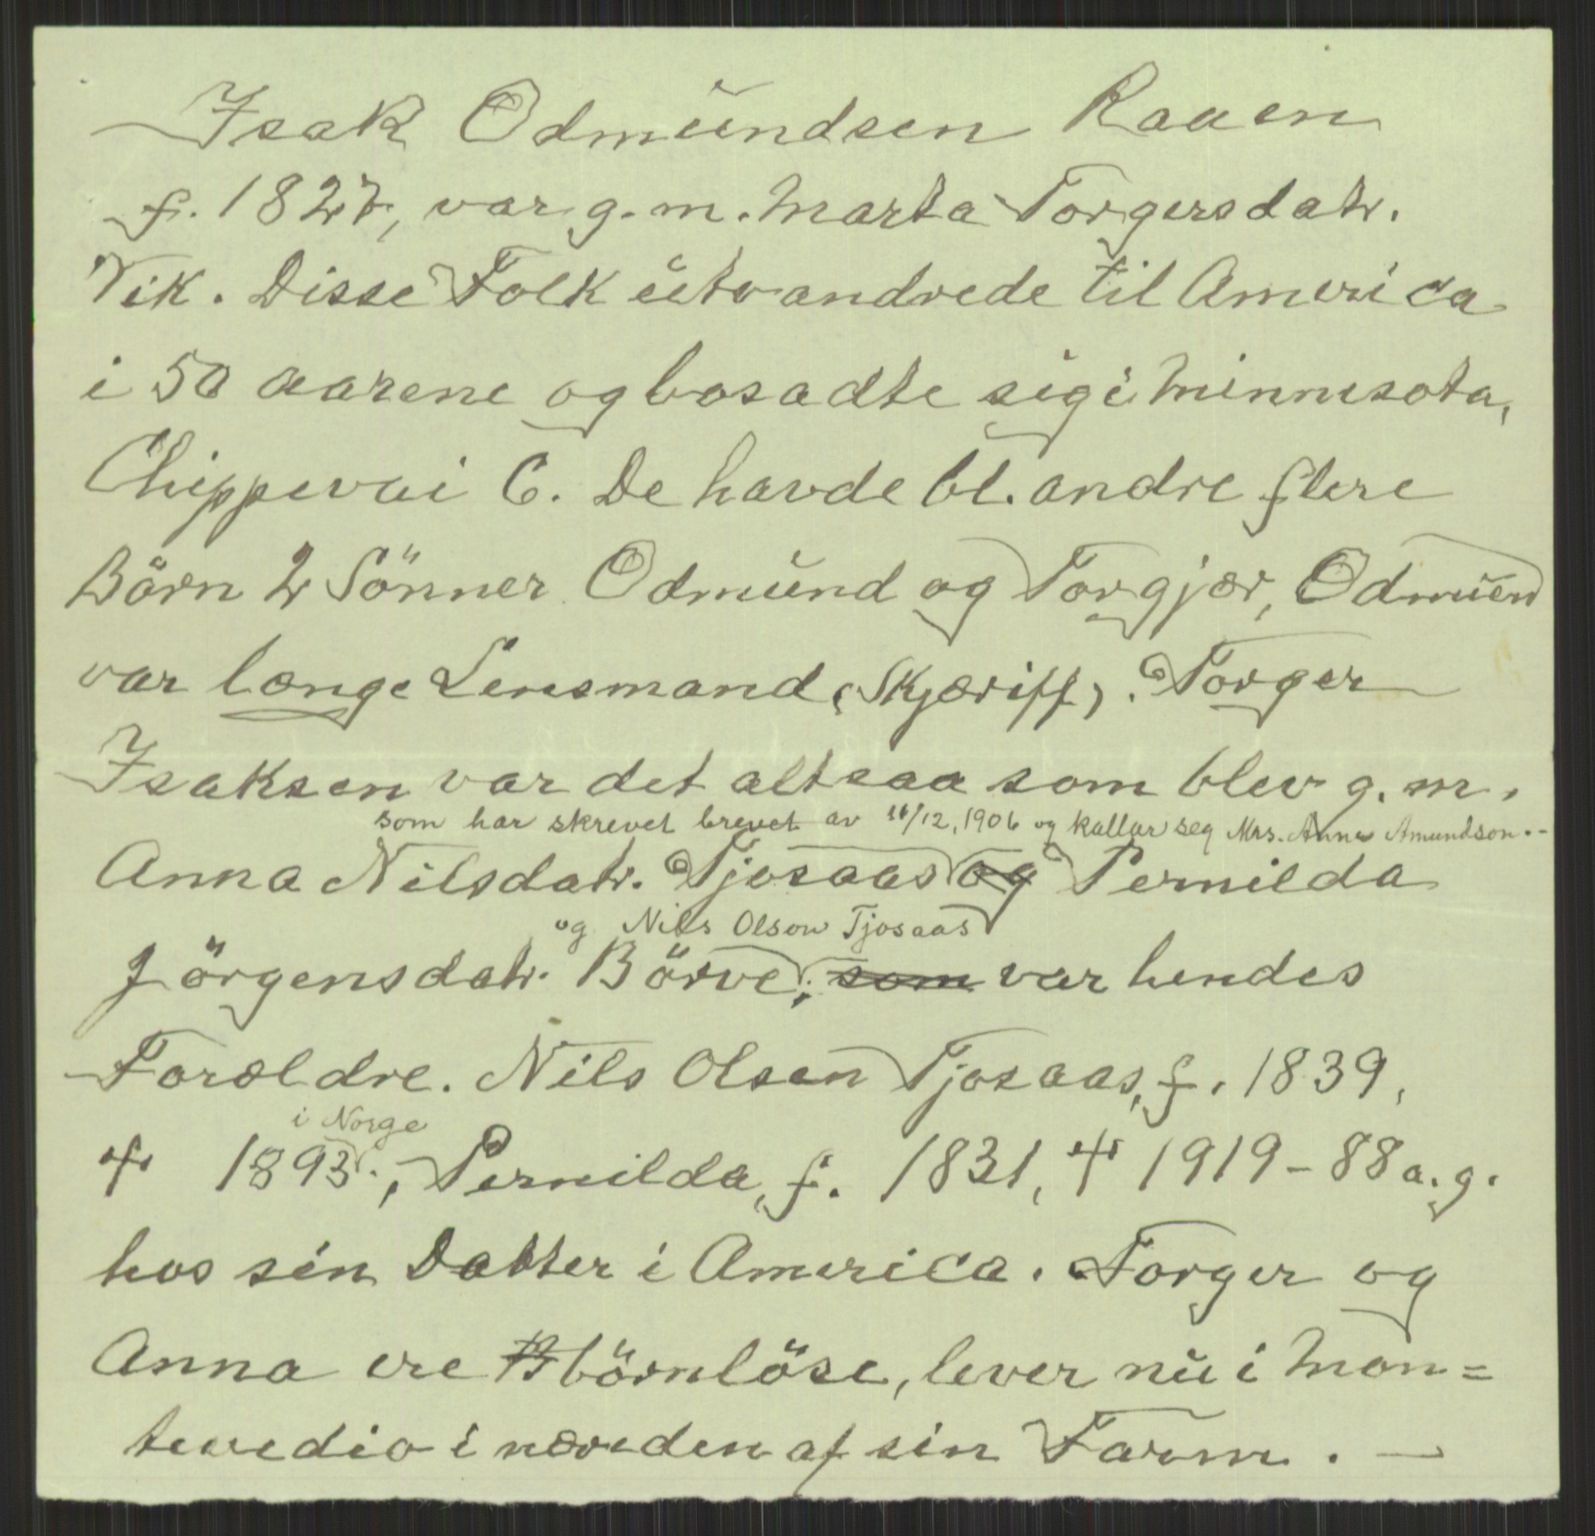 Isak Odmundsen Raaen
f. 1827, var g. m. Marta Torgersdatr.
Vik. Disse Folk utvandrede til America
i 50 aarene og bosadte sig i Minnesota,
Chippevai C. De havde bl. andre flere
Börn 2 Sönner Odmund og Torgjær, Odmund
var længe Lensmand, (Skjæriff). Torger
Isaksen var det altsaa som blev g. m.
som har skrevet brevet av 16/12, 1906 og kallar seg Mrs. Anna Amundson.-
Anna Nilsdatr. Tjosaas og Pernilda
og Nils Olson Tjosaas
Jörgensdatr. Börve, som var hendes
Forældre. Nils Olsen Tjosaas, f. 1839,
i Norge
† 1893., Pernilda, f. 1831, † 1919 - 88 a. g.
hos sin Datter i America. Torger og
Anna ere B börnlöse, lever nu i Mon=
tevedio i næreden af sin Farm. —